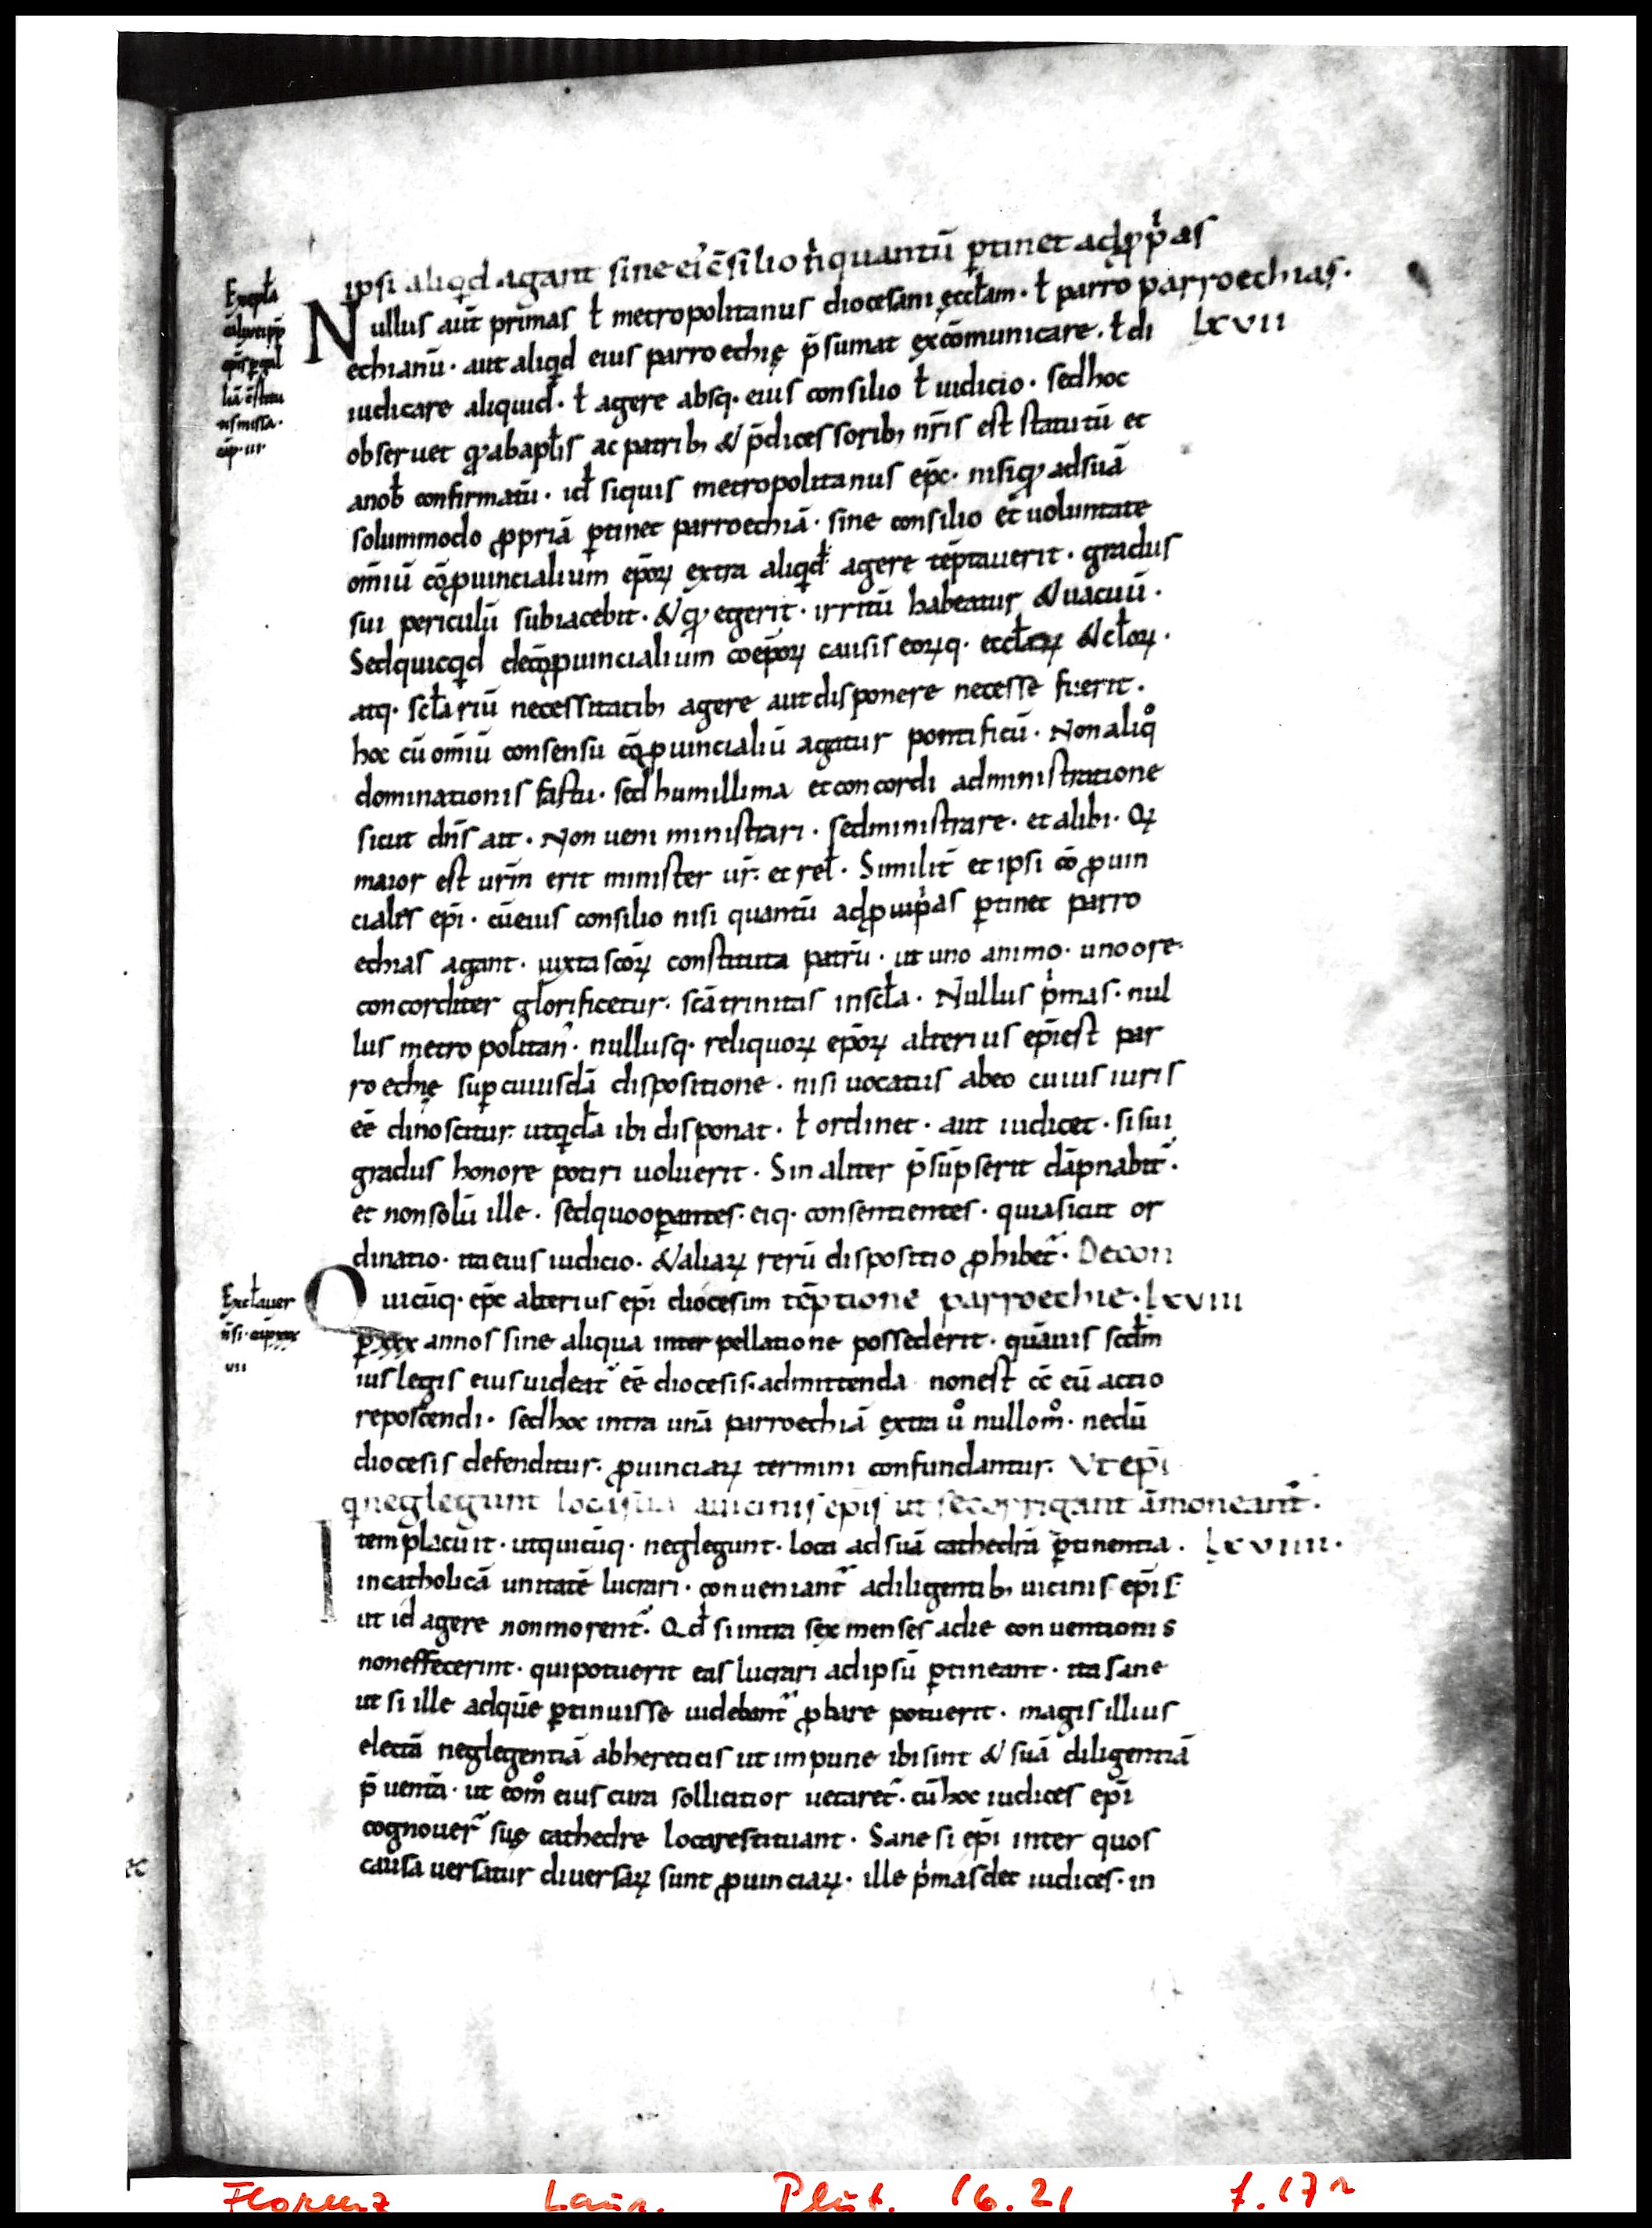 ipsi aliqd agant sine ei' c̄silio n̄ quantū ꝑtinet ad ꝓp̄as
parroechias.
Nullus aūt primas ł metropolitanus diocesani ęccłam · ł parro
echianū · aut aliqd eius parroechię p̄sumat excōmunicare · ł di
LXVII
iudicare aliquid · ł agere absq · eius consilio ł iudicio · sed hoc
obseruet qđ ab apłis ac patrib; & p̄dicessorib; nr̄is est statutū et
a nob̄ confirmatū · id siquis metropolitanus ep̄c · nisi qđ ad suā
solummodo ꝓpriā ꝑtinet parroechiā · sine consilio et uoluntate
om̄iū cōꝓuincialium ep̄oꝝ extra aliqd agere tēptauerit · gradus
sui periculū subiacebit · & qđ egerit · irritū habeatur & uacuū ·
Sed quicqd de cōꝓuincialium coep̄oꝝ causis eoꝝq · eccłaꝝ & cłoꝝ ·
atq · scłariū necessitatib; agere aut disponere necesse fuerit ·
hoc cū om̄iū consensu cōꝓuincialiū agatur pontificū · Non aliqo
dominationis fastu · sed humillima et concordi administratione
sicut dn̄s ait · Non ueni ministrari · sed ministrare · et alibi · Qui
maior est ur̄m erit minister ur̄ · et reł · Similit̄ et ipsi cō ꝓuin
ciales ep̄i · cū eius consilio nisi quantū ad ꝓprias ꝑtinet parro
echias agant · iuxta sc̄oꝝ constituta patrū · ut uno animo · uno ore
concorditer glorificetur · sc̄a trinitas in scła · Nullus p̄mas · nul
lus metropolitan' · nullusq · reliquoꝝ ep̄oꝝ alterius ep̄i est par
roechię sup cuiusdā dispositione · nisi uocatus ab eo cuius iuris
eē dinoscitur · ut qdła ibi disponat · ł ordinet · aut iudicet · si sui
gradus honore potiri uoluerit · Sin aliter p̄sūpserit dāpnabit̄ ·
et non solū ille · sed quooꝑantes · eiq · consentientes · quia sicut or
dinatio · ita eius iudicio · & aliaꝝ rerū dispositio ꝓhibet̄ · De con
temptione parroechie · LXVIII
Quicūq · ep̄c alterius ep̄i diocesim
ꝑ xxx annos sine aliqua interpellatione possederit · quāuis scdm
ius legis eius uideat̄ eē diocesis · admittenda non est cc̄ eū actio
reposcendi · sed hoc intra unā parroechiā extra uº nullomº · nedū
diocesis defenditur · ꝓuinciaꝝ termini confundantur · Vt ep̄i
q neglegunt loca sua a uicinis ep̄is ut se corrigant āmoneant̄ ·
Item placuit · ut quicūq · neglegunt · loca ad suā cathedrā ꝑtinentia · LXVIIII ·
in catholicā unitatē lucrari · conueniant̄ a diligentib; uicinis ep̄is ·
ut id agere non morent̄ · Qđ si intra sex menses a die conuentionis
non effecerint · qui potuerit eas lucrari ad ipsū ꝑtineant · ita sane
ut si ille ad quē ꝑtinuisse uidebant̄ ꝓbare potuerit · magis illius
electā neglegentiā ab hereticis ut impune ibi sint & suā diligentiā
p̄uentā · ut eomº eius cura sollicitior uetaret̄ · cū hoc iudices ep̄i
cognouer̄ suę cathedre loca restituant · Sane si ep̄i inter quos
causa uersatur diuersaꝝ sunt ꝓuinciaꝝ · ille p̄mas det iudices · in
Florenz Laur. Plut. 16.21 f. 17r